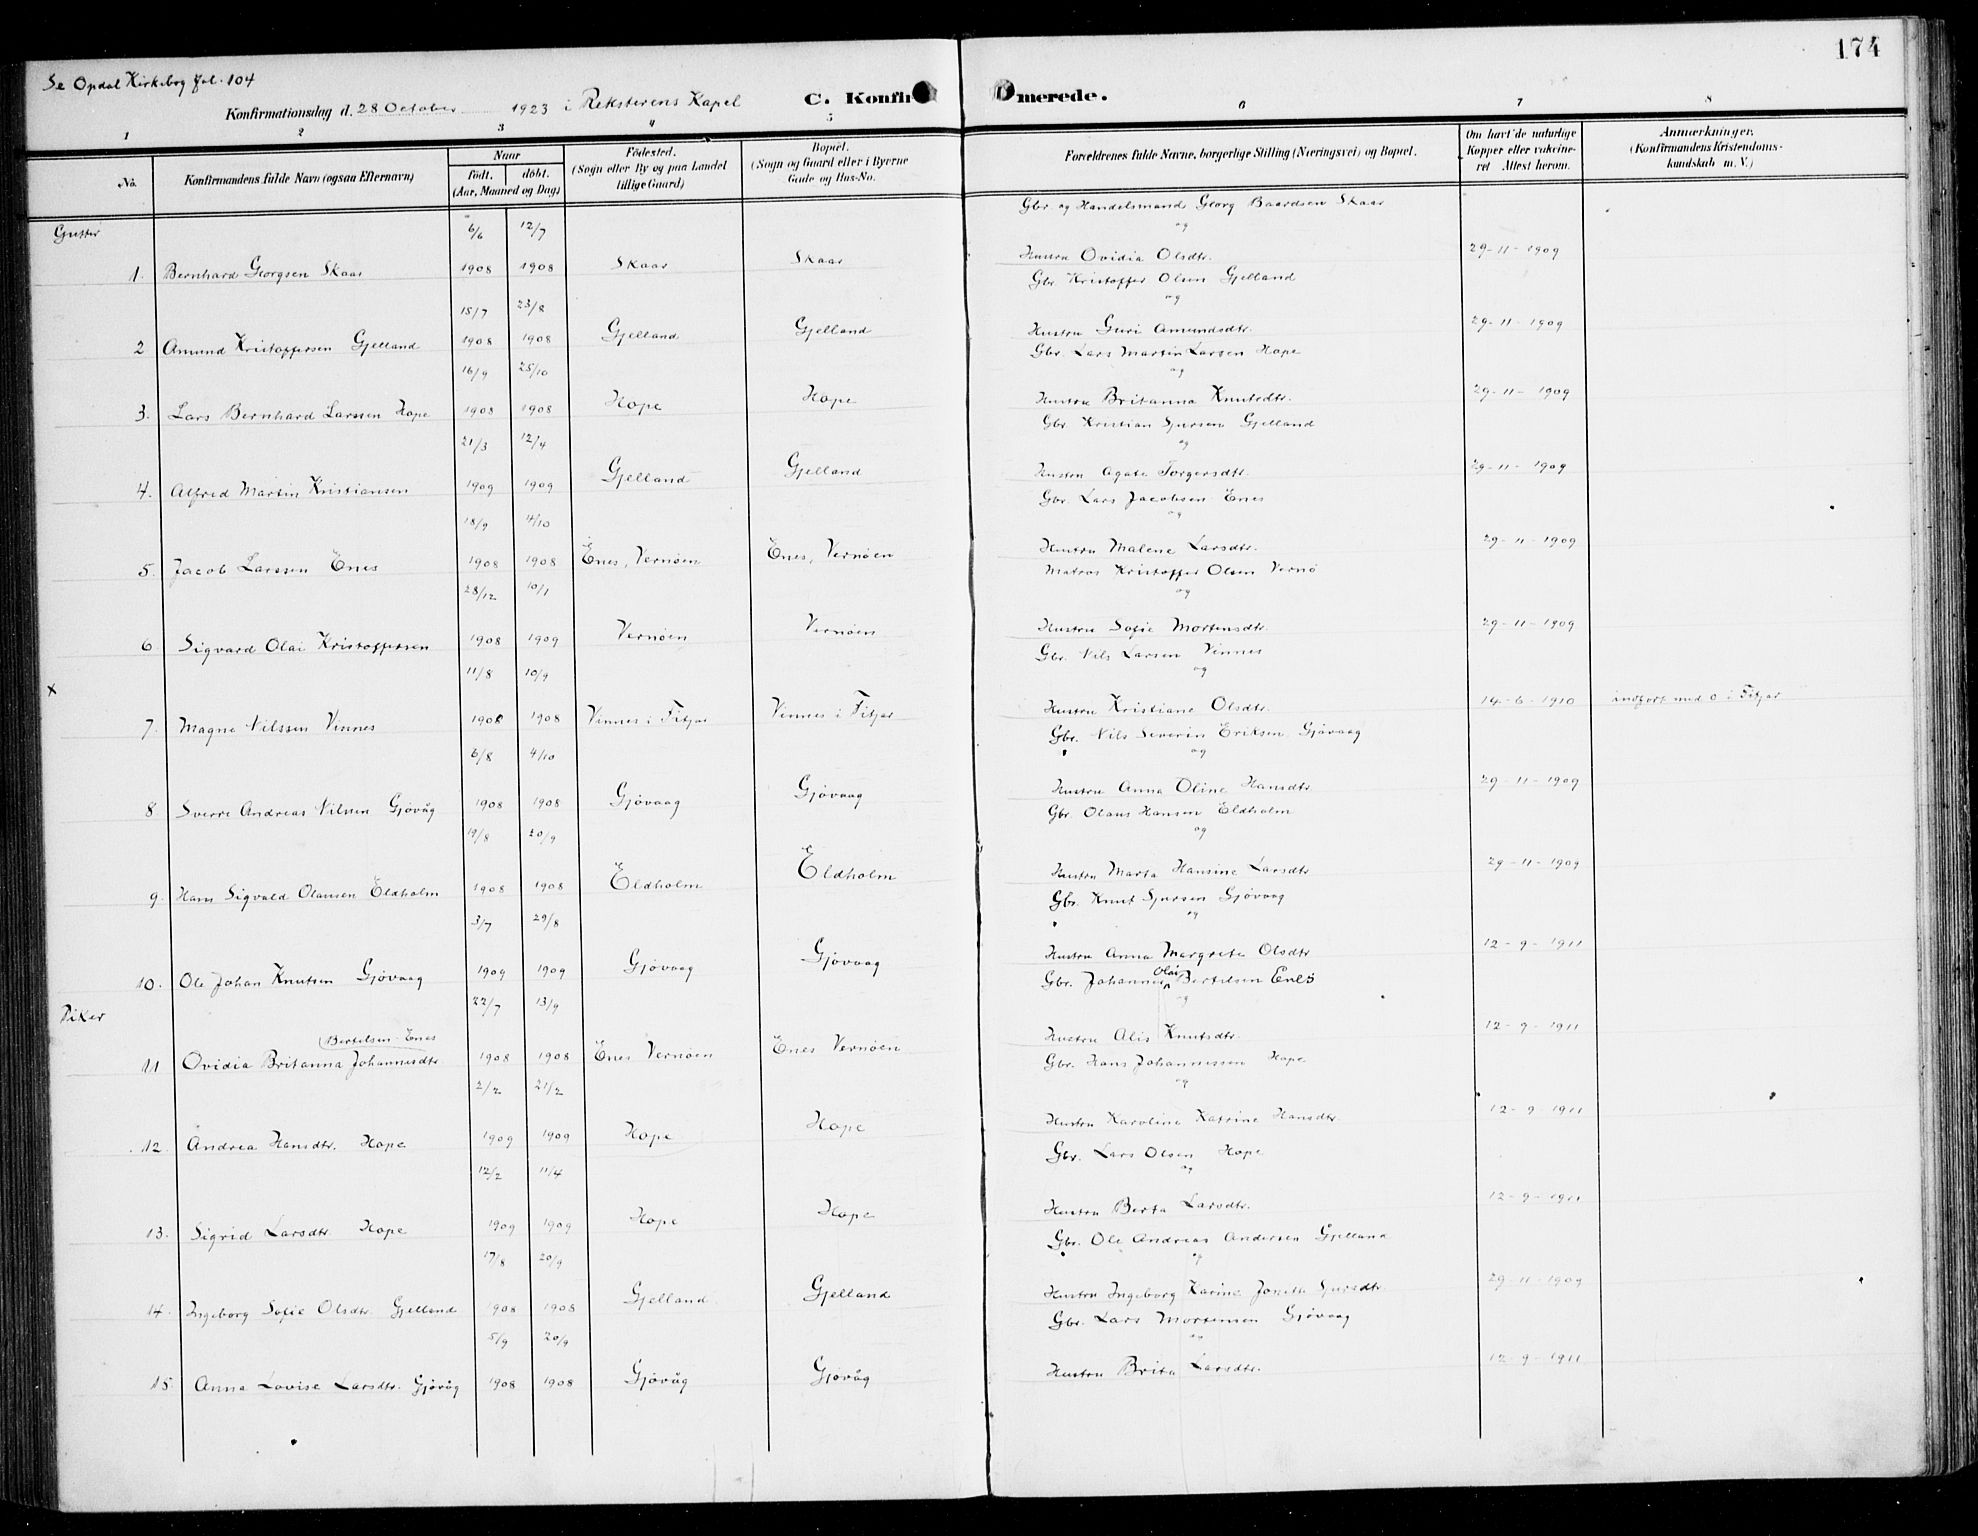 174
Se Opdal Kirkebog fol. 104
Konfirmationsdag d. 28 October 1923 i Reksterens Kapel
C. Konfirmerede.
1 2 3 4 5 6 7 8
No.
Konfirmandens fulde Navn (ogsaa Efternavn)
Naar
født. døbt.
(Aar, Maaned og Dag)
Fødested.
(Sogn eller By og paa Landet
tillige Gaard)
Bopæl.
(Sogn og Gaard eller i Byerne
Gade og Hus-No.
Forældrenes fulde Navne, borgerlige Stilling (Næringsvei) og Bopæl.
Om havt de naturlige
Kopper eller vakcine-
ret Attest herom.
Anmærkninger.
(Konfirmandens Kristendoms-
kundskab m. V.)
Gutter
6/6 12/7 Gbr. og Handelsmand Georg Baardsen Skaar
og
1. Bernhard Georgsen Skaar 1908 1908 Skaar Skaar Hustru Ovidia Olsdtr. 29-11-1909
15/7 23/8 Gbr Kristoffer Olsen Gjelland
og
2 Amund Kristoffersen Gjelland 1908 1908 Gjelland Gjelland Hustru Guri Amundsdtr. 29-11-1909
16/9 25/10 Gbr. Lars Martin Larsen Hope
og
3. Lars Bernhard Larsen Hope 1908 1908 Hope Hope Hustru Britanna Knutsdtr. 29-11-1909
21/3 12/4 Gbr Kristian Sjursen Gjelland
og
4. Alfred Martin Kristiansen 1909 1909 Gjelland Gjelland Hustru Agate Torgersdtr. 29-11-1909
18/9 4/10 Gbr. Lars Jacobsen Enes
og
5. Jacob Larsen Enes 1908 1908 Enes, Vernøen Enes, Vernøen Hustru Malene Larsdtr. 29-11-1909
28/12 10/1 Matros Kristoffer Olsen Vernø
og
6. Sigvard Olai Kristoffersen 1908 1909 Vernøen Vernøen Hustru Sofie Mortensdtr. 29-11-1909
11/8 10/9 Gbr. Nils Larsen Vinnes
og
x
7. Magne Nilssen Vinnes 1908 1908 Vinnes i Fitjar Vinnes i Fitjar Hustru Kristiane Olsdtr. 14-6-1910 indført med 0 i Fitjar
6/8 4/10 Gbr. Nils Severin Eriksen Gjøvaag
og
8 Sverre Andreas Nilsen Gjøvåg 1908 1908 Gjøvaag Gjøvaag Hustru Anna Oline Hansdtr. 29-11-1909
19/8 20/9 Gbr Olaus Hansen Eldholm
og
9. Hans Sigvald Olausen Eldholm 1908 1908 Eldholm Eldholm Hustru Marta Hansine Larsdtr 29-11-1909
3/7 29/8 Gbr. Knut Sjursen Gjøvaag
og
10. Ole Johan Knutsen Gjøvaag 1909 1909 Gjøvaag Gjøvaag Hustru Anna Margreta Olsdtr 12-9-1911
Piker
22/7 13/9 Gbr. Johannes Olai Bertelsen Enes
og
Bertelsen Enes
11 Ovidia Britanna Johannesdtr 1908 1908 Enes Vernøen Enes Vernøen Hustru Alis Knutsdtr. 12-9-1911
2/2 21/2 Gbr. Hans Johannessen Hope
og
12. Andrea Hansdtr. Hope 1909 1909 Hope Hope Hustru Karoline Katrine Hansdtr. 12-9-1911
12/2 11/4 Gbr. Lars Olsen Hope
og
13. Sigrid Larsdtr. Hope 1909 1909 Hope Hope Hustru Berta Larsdtr. 12-9-1911
17/8 20/9 Gbr. Ole Andreas Andersen Gjelland
og
14. Ingeborg Sofie Olsdtr. Gjelland 1908 1908 Gjelland Gjelland Hustru Ingeborg Karine Jonetta Sjursdtr. 29-11-1909
5/9 20/9 Gbr. Lars Mortensen Gjøvaag
og
15. Anna Lovise Larsdtr. Gjøvåg 1908 1908 Gjøvåg Gjøvåg Hustru Brita Larsdtr. 12-9-1911